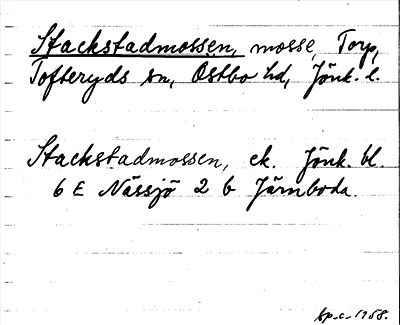 Stackstadmossen, mosse, Torp,
Tofteryds sn, Östbo hd, Jönk. l.
Stackstadmossen, ek. Jönk. bl.
6 E Nässjö 2 b Järnboda.
1958.